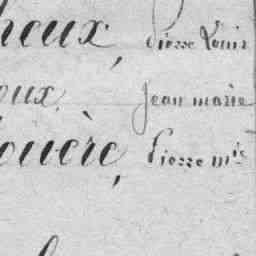 heux, Pierre Louis
oux Jean marie
ouère, Pierre mie